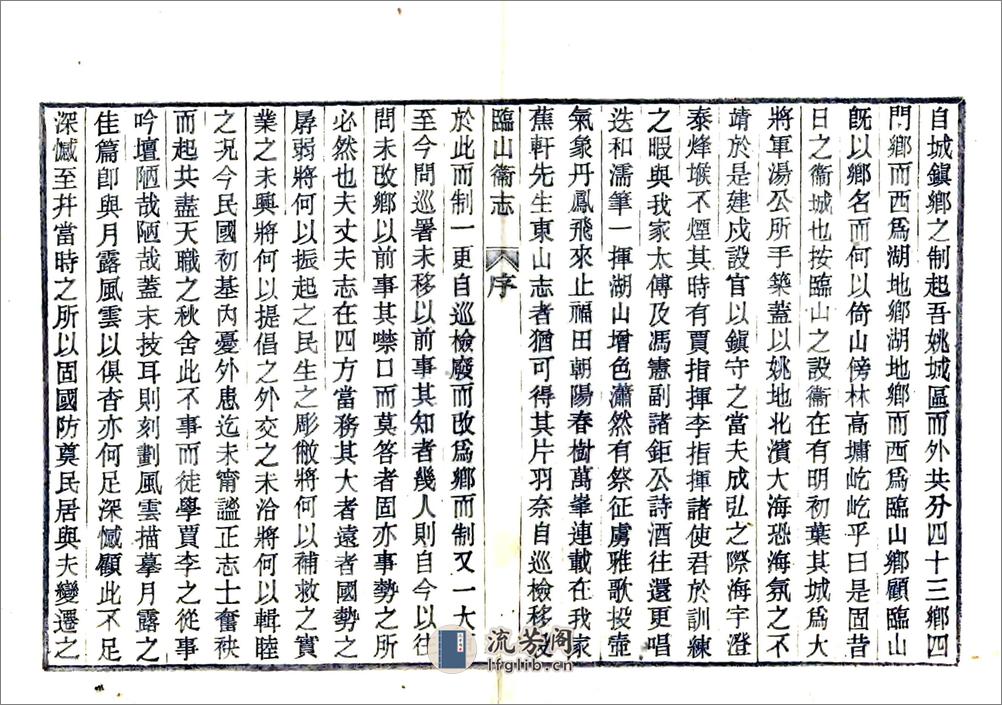 自城鎮鄉之制起吾姚城區而外共分四十三鄉四
門鄉而西爲湖地鄉湖地鄉而西爲臨山鄉顧臨山
旣以鄉名而何以倚山傍林高墉屹屹乎曰是固昔
日之衞城也按臨山之設衞在有明初葉其城爲大
將軍湯公所手築蓋以姚地北濱大海恐海氛之不
靖於是建戍設官以鎭守之當夫成弘之際海宇澄
泰烽堠不煙其時有賈指揮李指揮諸使君於訓練
之暇與我家太傅及馮憲副諸鉅公詩酒往還更唱
迭和濡筆一揮湖山增色瀟然有祭征虜雅歌投壺
氣象丹鳳飛來止福田朝陽春樹萬峯連載在我家
蕉軒先生東山志者猶可得其片羽奈自巡檢移
臨山衞志
序
於此而制一更自巡檢廢而改爲鄉而制又一大
至今問巡署未移以前事其知者幾人則自今以往
問未改鄉以前事其噤口而莫答者固亦事勢之所
必然也夫丈夫志在四方當務其大者遠者國勢之
孱弱將何以振起之民生之彫敝將何以補救之實
業之未興將何以提倡之外交之未洽將何以輯睦
之況今民國初基內憂外患迄未甯謐正志士奮袂
而起共盡天職之秋舍此不事而徒學賈李之從事
吟壇陋哉陋哉蓋末技耳則刻劃風雲描摹月露之
佳篇卽與月露風雲以俱杳亦何足深憾顧此不足
深憾至幷當時之所以固國防奠民居與夫變遷之
流芳阁
lfglib.cn